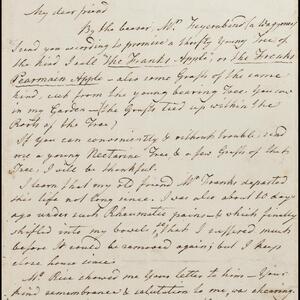 My dear friend
By the bearer Mr. Heycombend (a Wagoner)
I send you according to promise a thrifty young Tree of
the kind I call The Franks Apple, or the Franks
Pearmain Apple — also some Grafts of the same
kind cut from the young bearing Tree You saw
in my Garden — (the Grafts tied up within the
Roots of the Tree)
If You can conveniently & without trouble, send
me a young Nectarine Tree & a few Grafts of that
Tree, I will be thankful.
I learn that my old friend Mr. Franks departed
this life not long since. I was also about 10 days
ago under such Rheumatic pains — which finally
shifted into my bowels, that I suffered much
before it could be removed again; but I keep
close house since
Mr. Rice showed me Your letter to him — Your
kind remembrance & salutation to me, was chearing